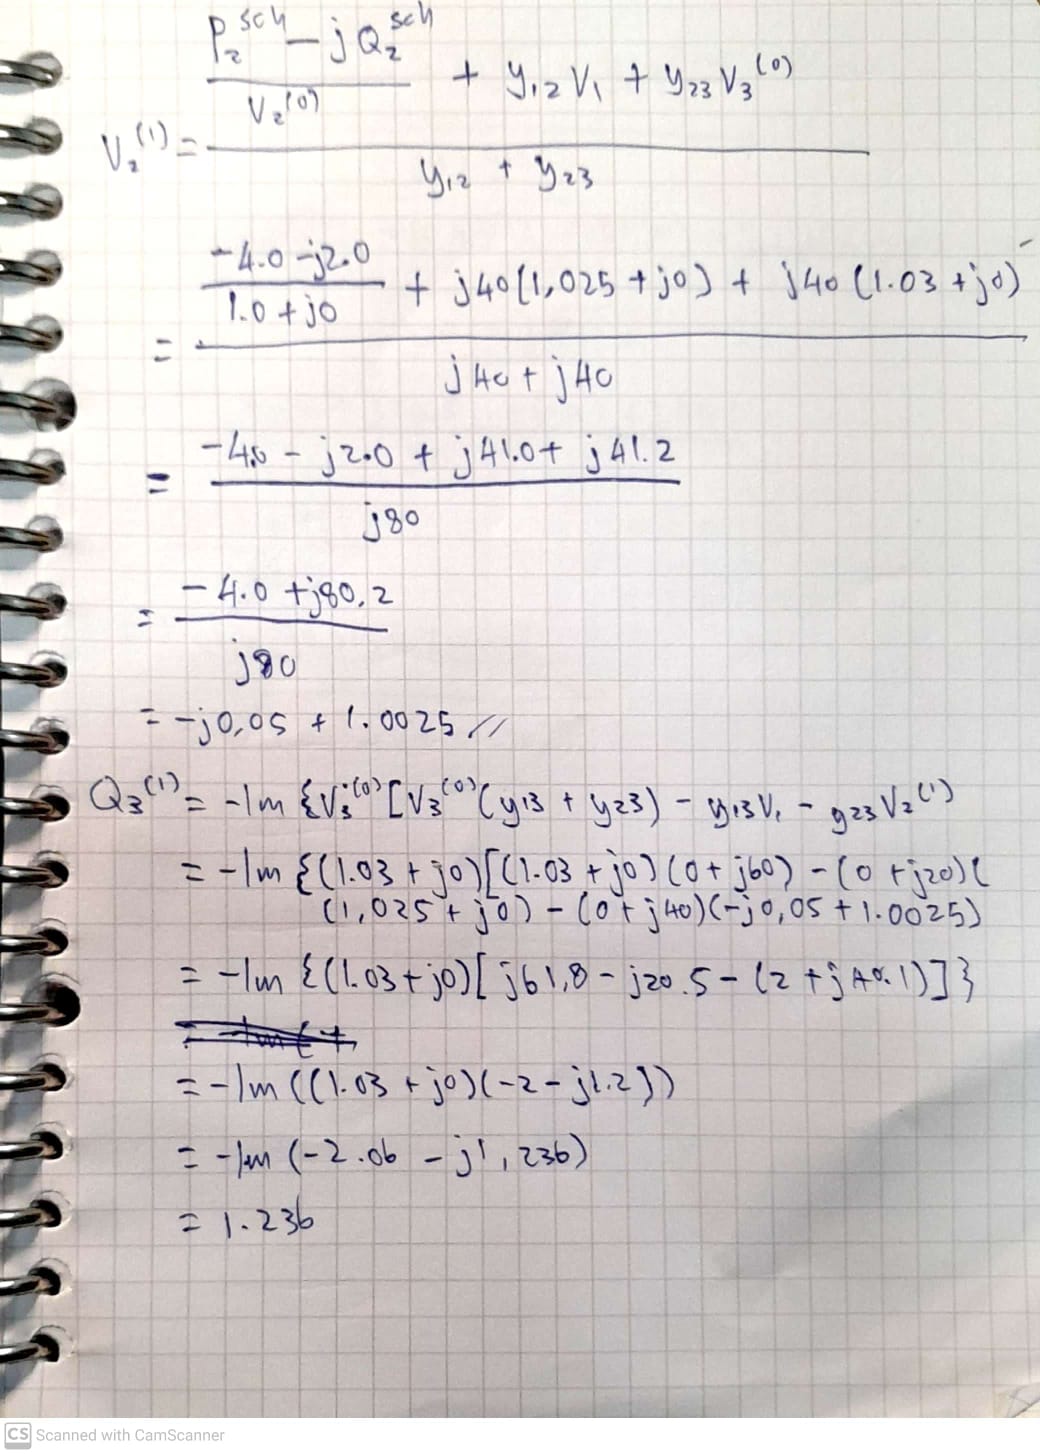 P₂ˢᶜʰ - jQ₂ˢᶜʰ
V₂⁽⁰⁾
+ y₁₂V₁ + y₂₃V₃⁽⁰⁾
V₂⁽¹⁾ =
y₁₂ + y₂₃
-4.0 -j2.0
1.0 + j0
+ j40(1,025 + j0) + j40(1.03 + j0)
=
j40 + j40
= -4.0 - j2.0 + j41.0 + j41.2
j80
= -4.0 + j80,2
j80
= -j0,05 + 1.0025 //
Q₃⁽¹⁾ = -Im {V₃*⁽⁰⁾[V₃⁽⁰⁾(y13 + y23) - y13V₁ - y23V₂⁽¹⁾
= -Im {(1.03 + j0)[(1.03 + j0)(0 + j60) - (0 + j20)(
(1,025 + j0) - (0 + j40)(-j0,05 + 1.0025)
= -Im {(1.03 + j0)[j61,8 - j20.5 - (2 + j40.1)]}
= -Im ((1.03 + j0)(-2 - j1.2))
= -Im (-2.06 - j1,236)
= 1.236
CS Scanned with CamScanner